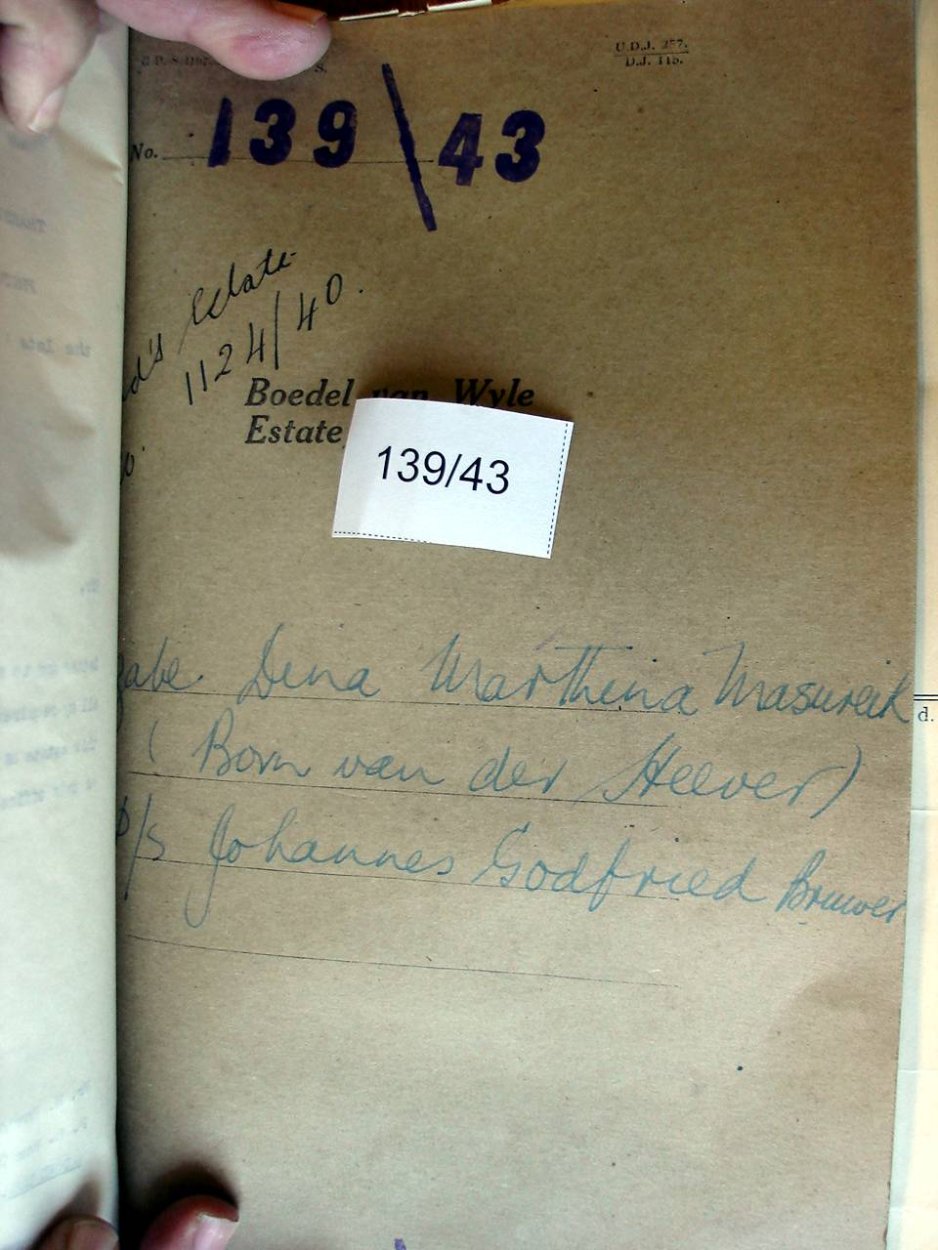 U.D.J. 257.
D.J. 115.
No. 139\43
d's Estate
1124/40.
Boedel van Wyle
Estate
139/43
abe Dina Marthina Masureik
(Born van der Heever)
p/s Johannes Godfried Bruwer
d.